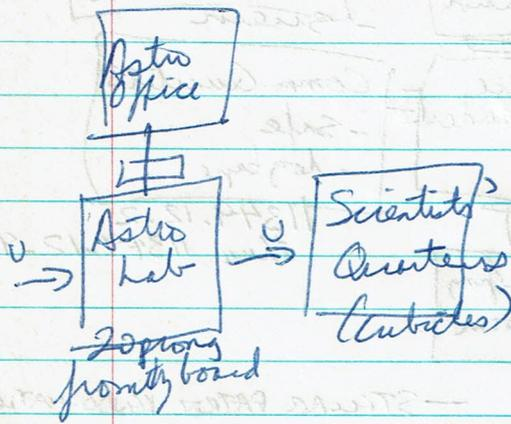 Astro
Office
Astro
Lab
U
U
Scientists'
Quarters
(Cubicles)
20 prong
board